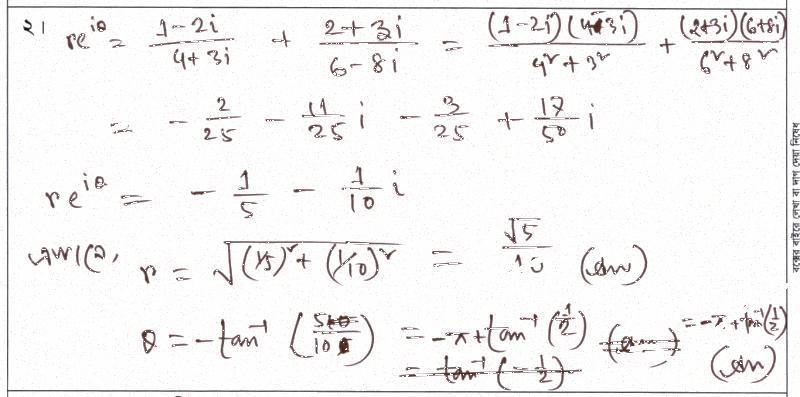 ২। re^{iθ} = \frac{1-2i}{4+3i} + \frac{2+3i}{6-8i} = \frac{(1-2i)(4-3i)}{4²+3²} + \frac{(2+3i)(6+8i)}{6²+8²}
= -\frac{2}{25} - \frac{11}{25} i - \frac{3}{25} + \frac{17}{50} i
re^{iθ} = -\frac{1}{5} - \frac{1}{10} i
r = \sqrt{(1/5)² + (1/10)²} = \frac{\sqrt{5}}{10} (Ans)
θ = -tan⁻¹ = -π + tan⁻¹(\frac{1}{2}) = -π + tan⁻¹(\frac{1}{2})
= tan⁻¹(-\frac{1}{2}) (Ans)
বক্সের বাইরে লেখা বা দাগ দেয়া নিষেধ